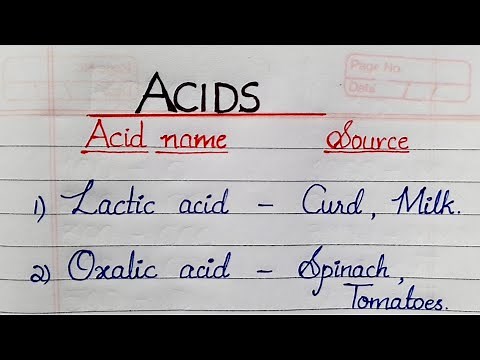 Page No.
Date / /
ACIDS
Acid name Source
1) Lactic acid - Curd, Milk.
2) Oxalic acid - Spinach,
Tomatoes.